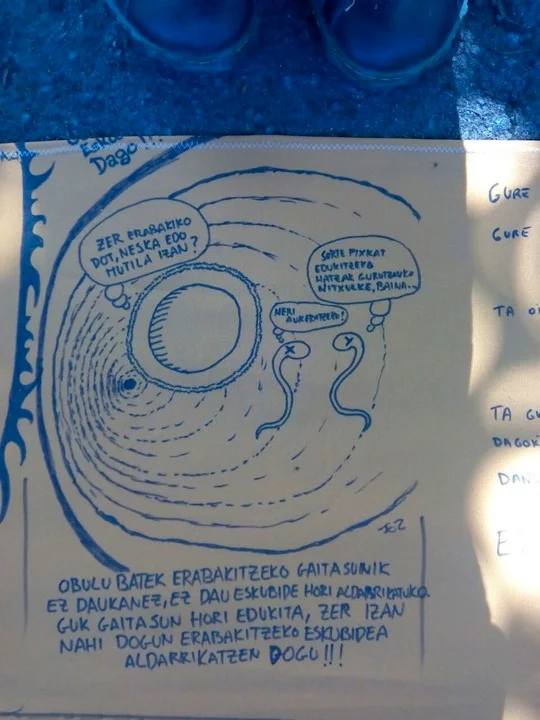 Dago!!!
ZER ERABAKIKO
DOT, NESKA EDO
MUTILA IZAN?
SORTE PIXKAT
EDUKITZEKO
HATZAK GURUTZAUKO
NITXUKE, BAINA...
NERI
AUKERATZEKO!
JOZ
OBULU BATEK ERABAKITZEKO GAITASUNIK
EZ DAUKANEZ, EZ DAU ESKUBIDE HORI ALDARRIKATUKO.
GUK GAITASUN HORI EDUKITA, ZER IZAN
NAHI DOGUN ERABAKITZEKO ESKUBIDEA
ALDARRIKATZEN DOGU!!!
GURE
GURE
TA
TA GU
DAGOK